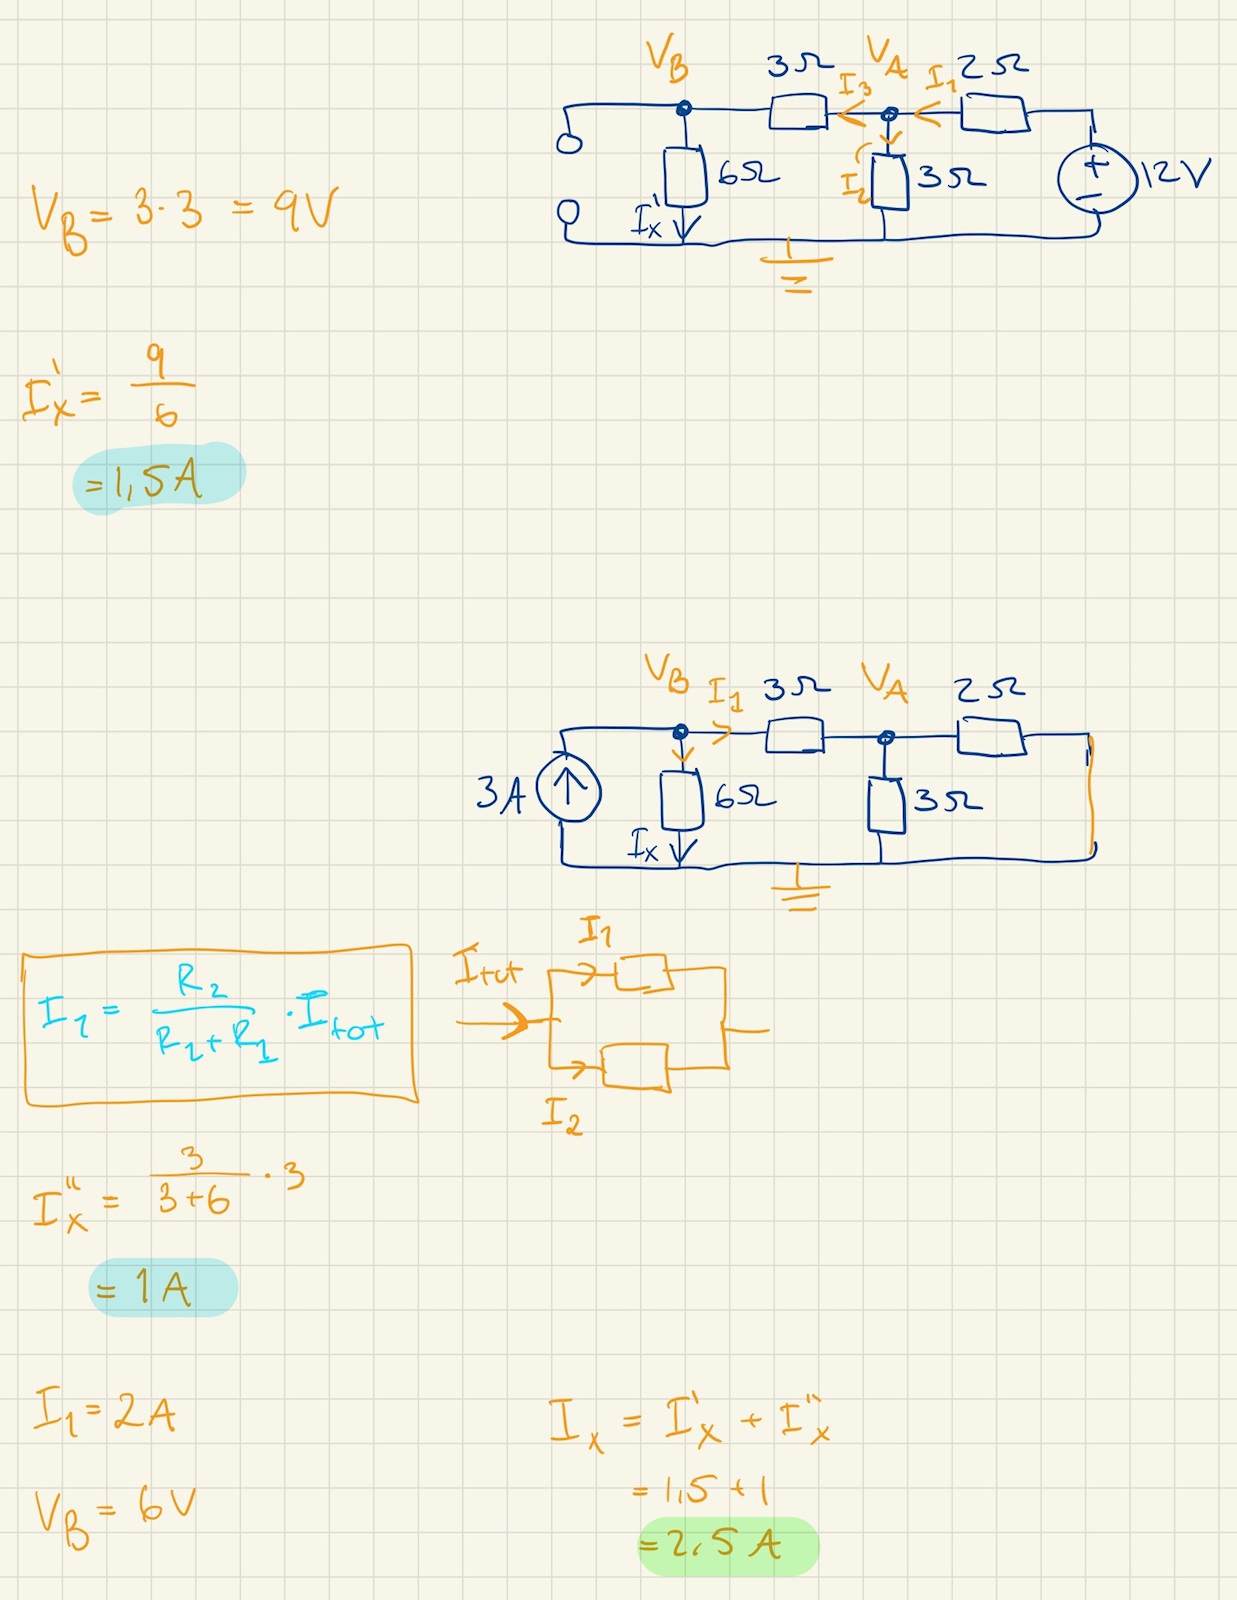 V_B 3Ω V_A 2Ω
I_3 I_1
6Ω I_2 3Ω 12V
+
−
I_x'
V_B = 3·3 = 9V
I_x' = 9/6
= 1,5A
V_B I_1 3Ω V_A 2Ω
3A 6Ω 3Ω
I_x
I_1 = R_2/(R_2+R_1) · I_tot
I_tot I_1
I_2
I_x'' = 3/(3+6) · 3
= 1A
I_1 = 2A
V_B = 6V
I_x = I_x' + I_x''
= 1,5 + 1
= 2,5 A